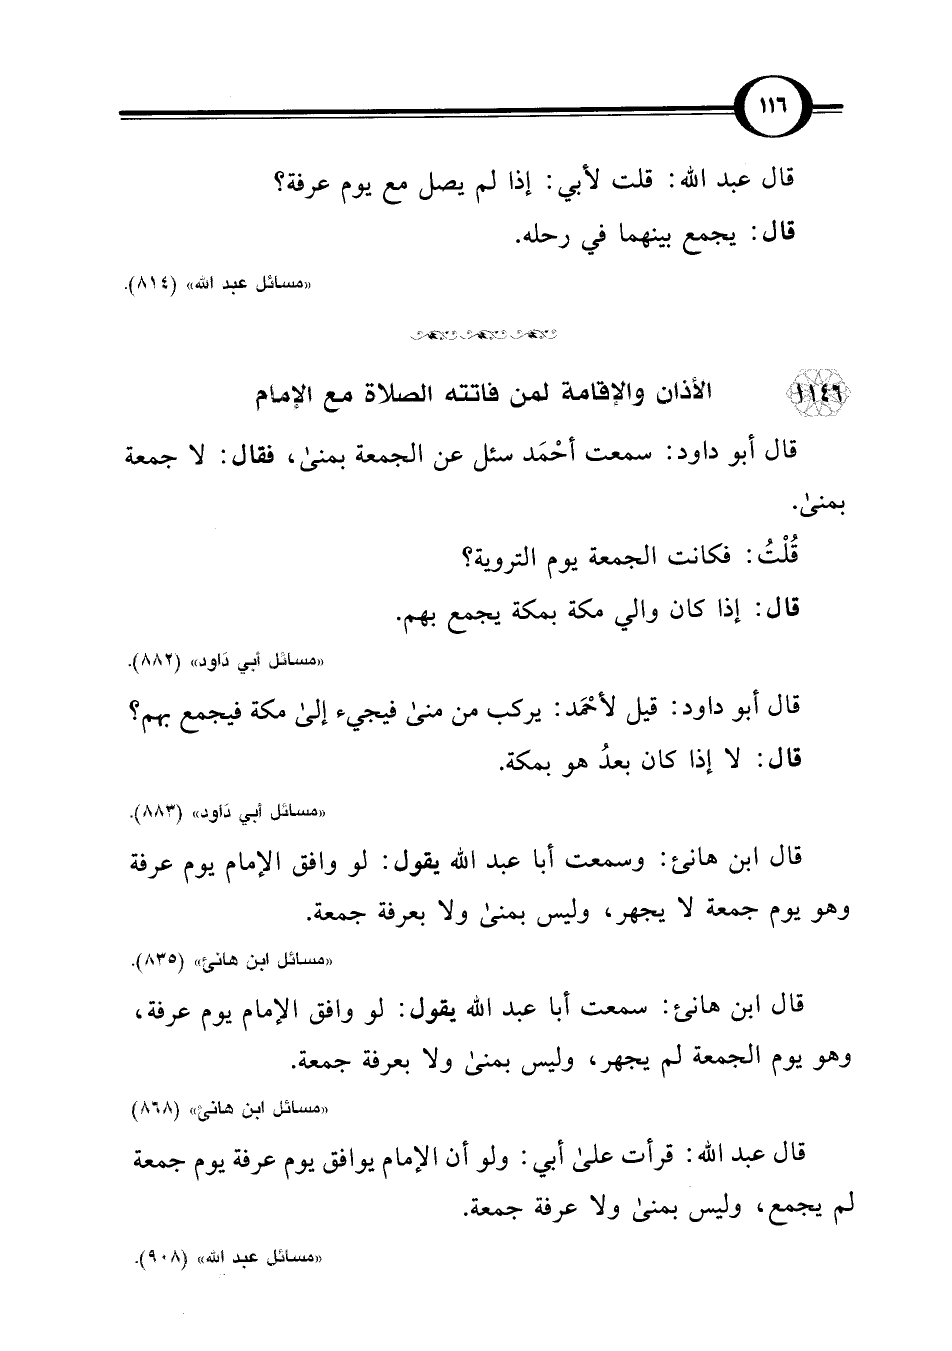 ١١٦
قال عبد الله: قلت لأبي: إذا لم يصل مع يوم عرفة؟
قال: يجمع بينهما في رحله.
«مسائل عبد الله» (٨١٤).
١١٤٦ الأذان والإقامة لمن فاتته الصلاة مع الإمام
قال أبو داود: سمعت أحْمَد سئل عن الجمعة بمنىٰ، فقال: لا جمعة
بمنىٰ.
قُلْتُ: فكانت الجمعة يوم التروية؟
قال: إذا كان والي مكة بمكة يجمع بهم.
«مسائل أبي دَاود» (٨٨٢).
قال أبو داود: قيل لأحْمَد: يركب من منىٰ فيجيء إلىٰ مكة فيجمع بهم؟
قال: لا إذا كان بعدُ هو بمكة.
«مسائل أبي دَاود» (٨٨٣).
قال ابن هانئ: وسمعت أبا عبد الله يقول: لو وافق الإمام يوم عرفة
وهو يوم جمعة لا يجهر، وليس بمنىٰ ولا بعرفة جمعة.
«مسائل ابن هانئ» (٨٣٥).
قال ابن هانئ: سمعت أبا عبد الله يقول: لو وافق الإمام يوم عرفة،
وهو يوم الجمعة لم يجهر، وليس بمنىٰ ولا بعرفة جمعة.
«مسائل ابن هانئ» (٨٦٨)
قال عبد الله: قرأت علىٰ أبي: ولو أن الإمام يوافق يوم عرفة يوم جمعة
لم يجمع، وليس بمنىٰ ولا عرفة جمعة.
«مسائل عبد الله» (٩٠٨).